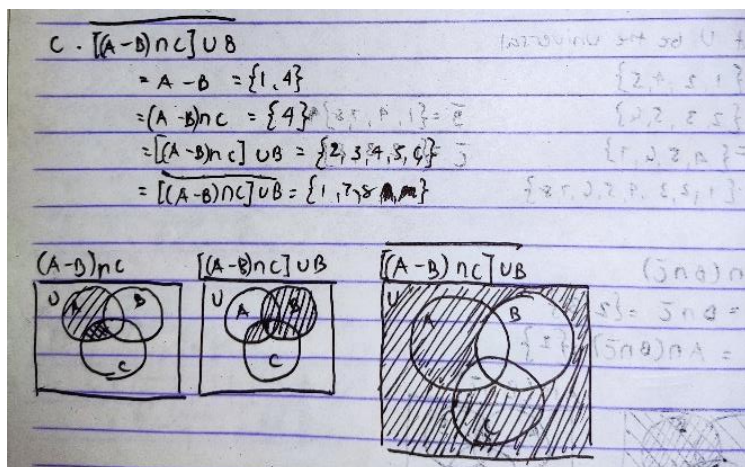 C . [(A-B)∩C]∪B
= A - B = {1, 4}
=(A-B)∩C = {4}
=[(A-B)∩C] ∪B = {2,3,4,5,6}
= [(A-B)∩C]∪B = {1,7,8}
(A-B)∩C [(A-B)∩C]∪B [(A-B)∩C]∪B
U A B C
U A B C
U A B C